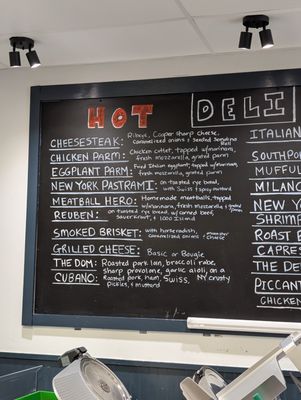 HOT
DELI
CHEESESTEAK: Ribeye, Cooper Sharp Cheese,
Caramelized onions & Seeded Semolina
Roll
CHICKEN PARM: Chicken cutlet, topped w/marinara,
fresh mozzarella, grated parm
EGGPLANT PARM: Fried Italian eggplant, topped w/marinara,
fresh mozzarella, grated parm
NEW YORK PASTRAMI: on toasted rye bread,
with Swiss & spicy mustard
MEATBALL HERO: Homemade meatballs, topped
w/marinara, fresh mozzarella & grated parm
REUBEN: on toasted rye bread, w/corned beef,
Sauerkraut, & 1000 Island
SMOKED BRISKET: with horseradish,
Caramelized onions & Cheese
GRILLED CHEESE: Basic or Bougie
THE DOM: Roasted pork loin, broccoli rabe,
sharp provolone, garlic aioli, on a
CUBANO: Roasted pork, ham, Swiss, NY crusty
pickles, & mustard
ITALIAN
SOUTHPO
MUFFUL
MILANO
NEW YOR
SHRIMP
ROAST B
CAPRES
THE DE
PICCANT
CHICKEN